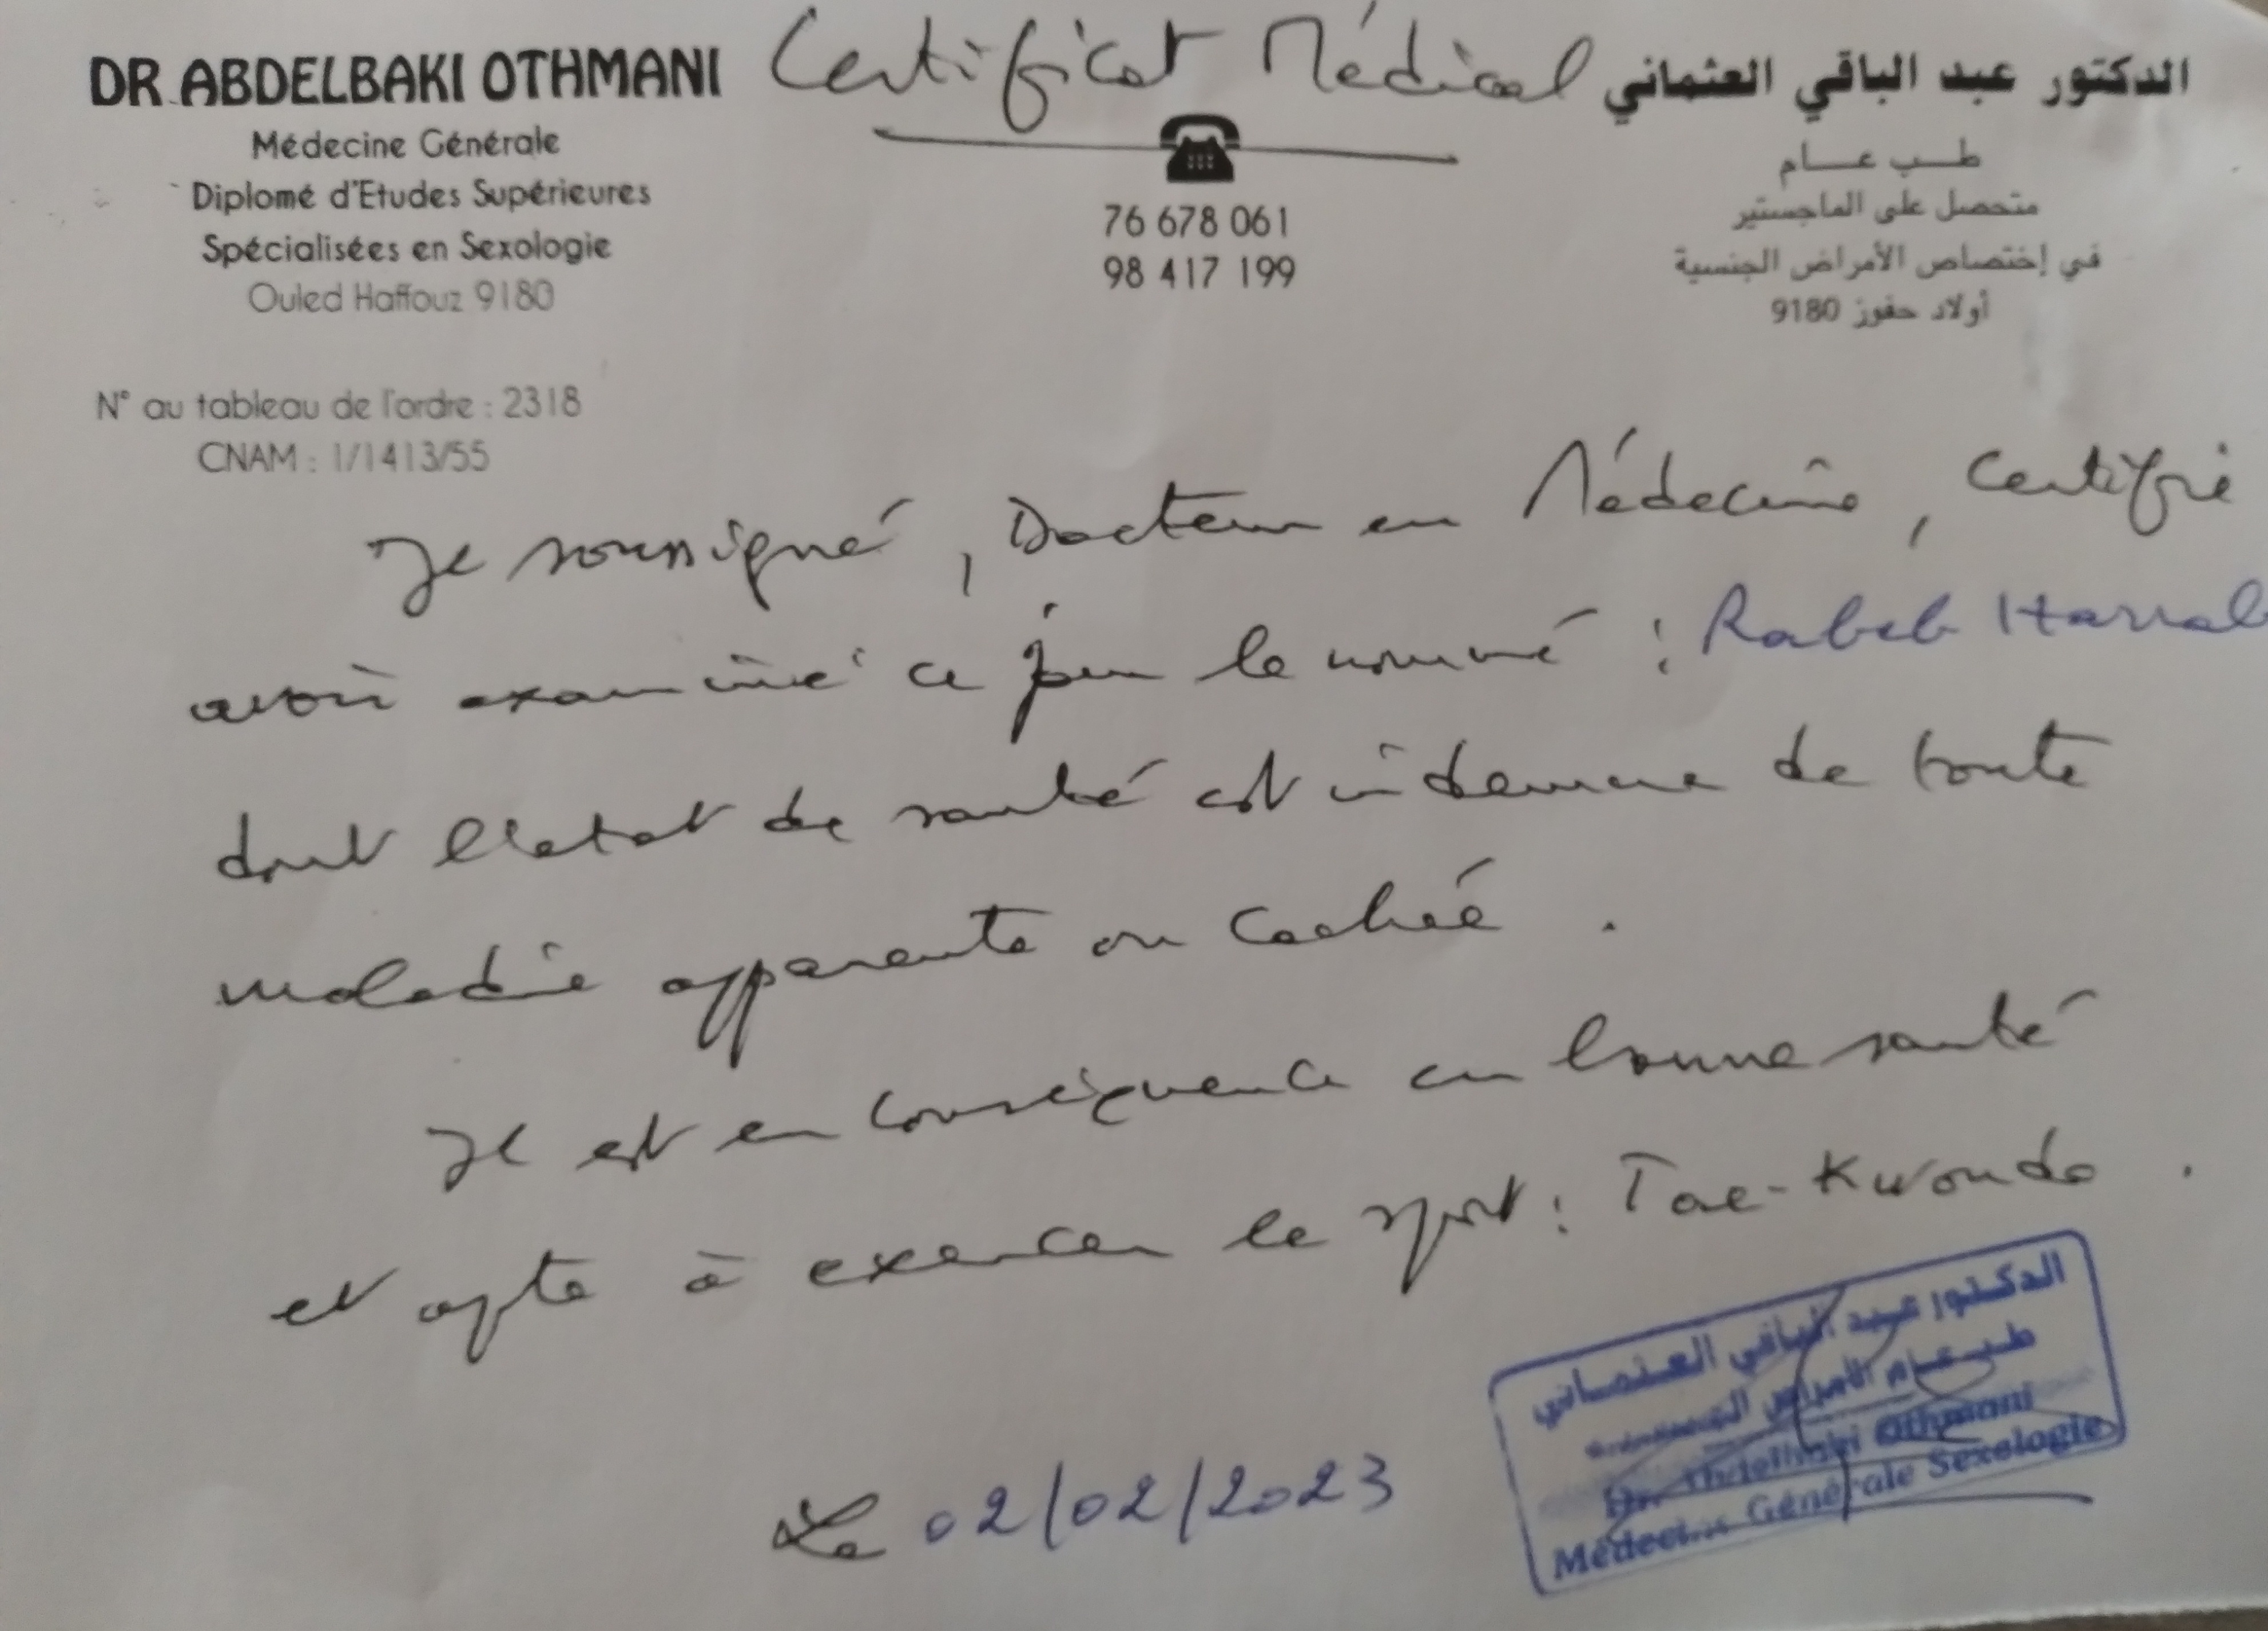 Certificat Médical
DR ABDELBAKI OTHMANI
Médecine Générale
Diplomé d'Etudes Supérieures
Spécialisées en Sexologie
Ouled Haffouz 9180
76 678 061
98 417 199
الدكتور عبد الباقي العثماني
طب عام
متحصل على الماجستير
في إختصاص الأمراض الجنسية
أولاد حفوز 9180
N° au tableau de l'ordre : 2318
CNAM : 1/1413/55
Je soussigné, Docteur en Médecine, Certifie
avoir examiné ce jour le nommé : Rabeb
dont l'état de santé est indemne de toute
maladie apparente ou cachée.
Il est en conséquence en bonne santé
et apte à exercer le sport : Tae-Kwondo.
Le 02/02/2023
الدكتور عبد الباقي العثماني
طب عام الأمراض
Dr. Abdelbaki Othmani
Médecine Générale Sexologie